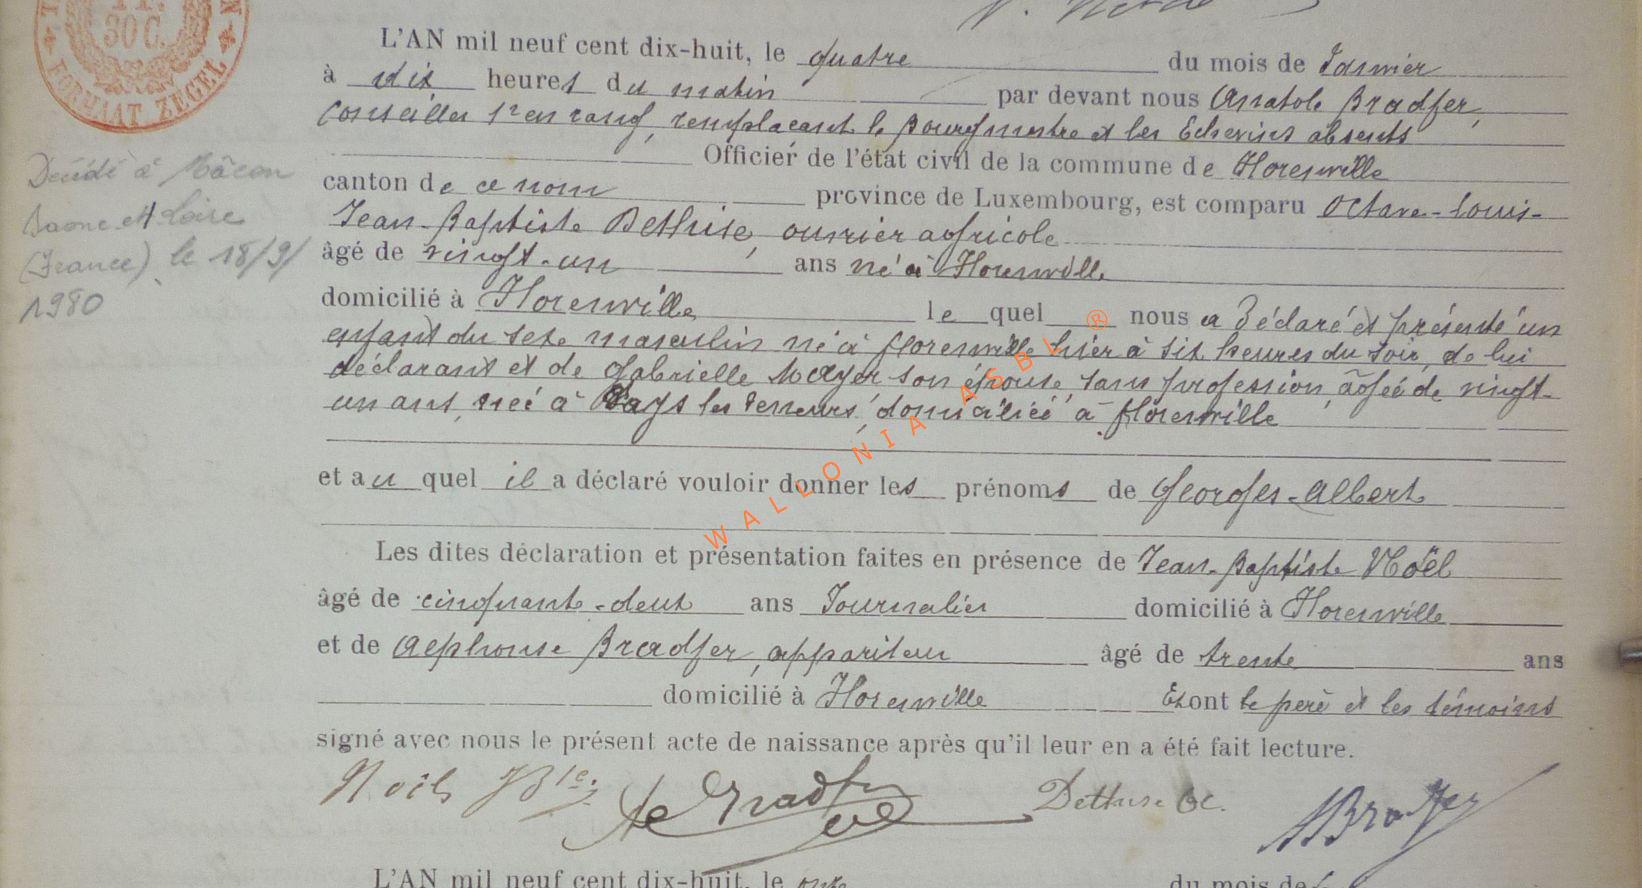 30 C.
FORMAAT ZEGEL
L'AN mil neuf cent dix-huit, le quatre du mois de Janvier
à dix heures du matin par devant nous Anatole Bradfer,
Conseiller 1r en rang, remplaçant le Bourgmestre et les Echevins absents
Officier de l'état civil de la commune de Florenville
canton de ce nom province de Luxembourg, est comparu Octave-Louis-
Jean-Baptiste Dethise, ouvrier agricole
âgé de vingt-un ans né à Florenville
domicilié à Florenville lequel nous a déclaré et présenté un
enfant du sexe masculin né à Florenville hier à six heures du soir, de lui
déclarant et de Gabrielle Mayer son épouse, sans profession, âgée de vingt-
un ans, née à domiciliée à Florenville
et au quel il a déclaré vouloir donner les prénoms de Georges-Albert
Les dites déclaration et présentation faites en présence de Jean-Baptiste Noël
âgé de cinquante-deux ans Journalier domicilié à Florenville
et de Alphonse Bradfer, appariteur âgé de trente ans
domicilié à Florenville Et ont le père et les témoins
signé avec nous le présent acte de naissance après qu'il leur en a été fait lecture.
Décédé à Mâcon
Saone et Loire
(France) le 18/9/
1980
WALLONIA ASBL ®
Noël JBte
Bradfer
Dethise Oc.
ABradfer
L'AN mil neuf cent dix-huit, le onze du mois de